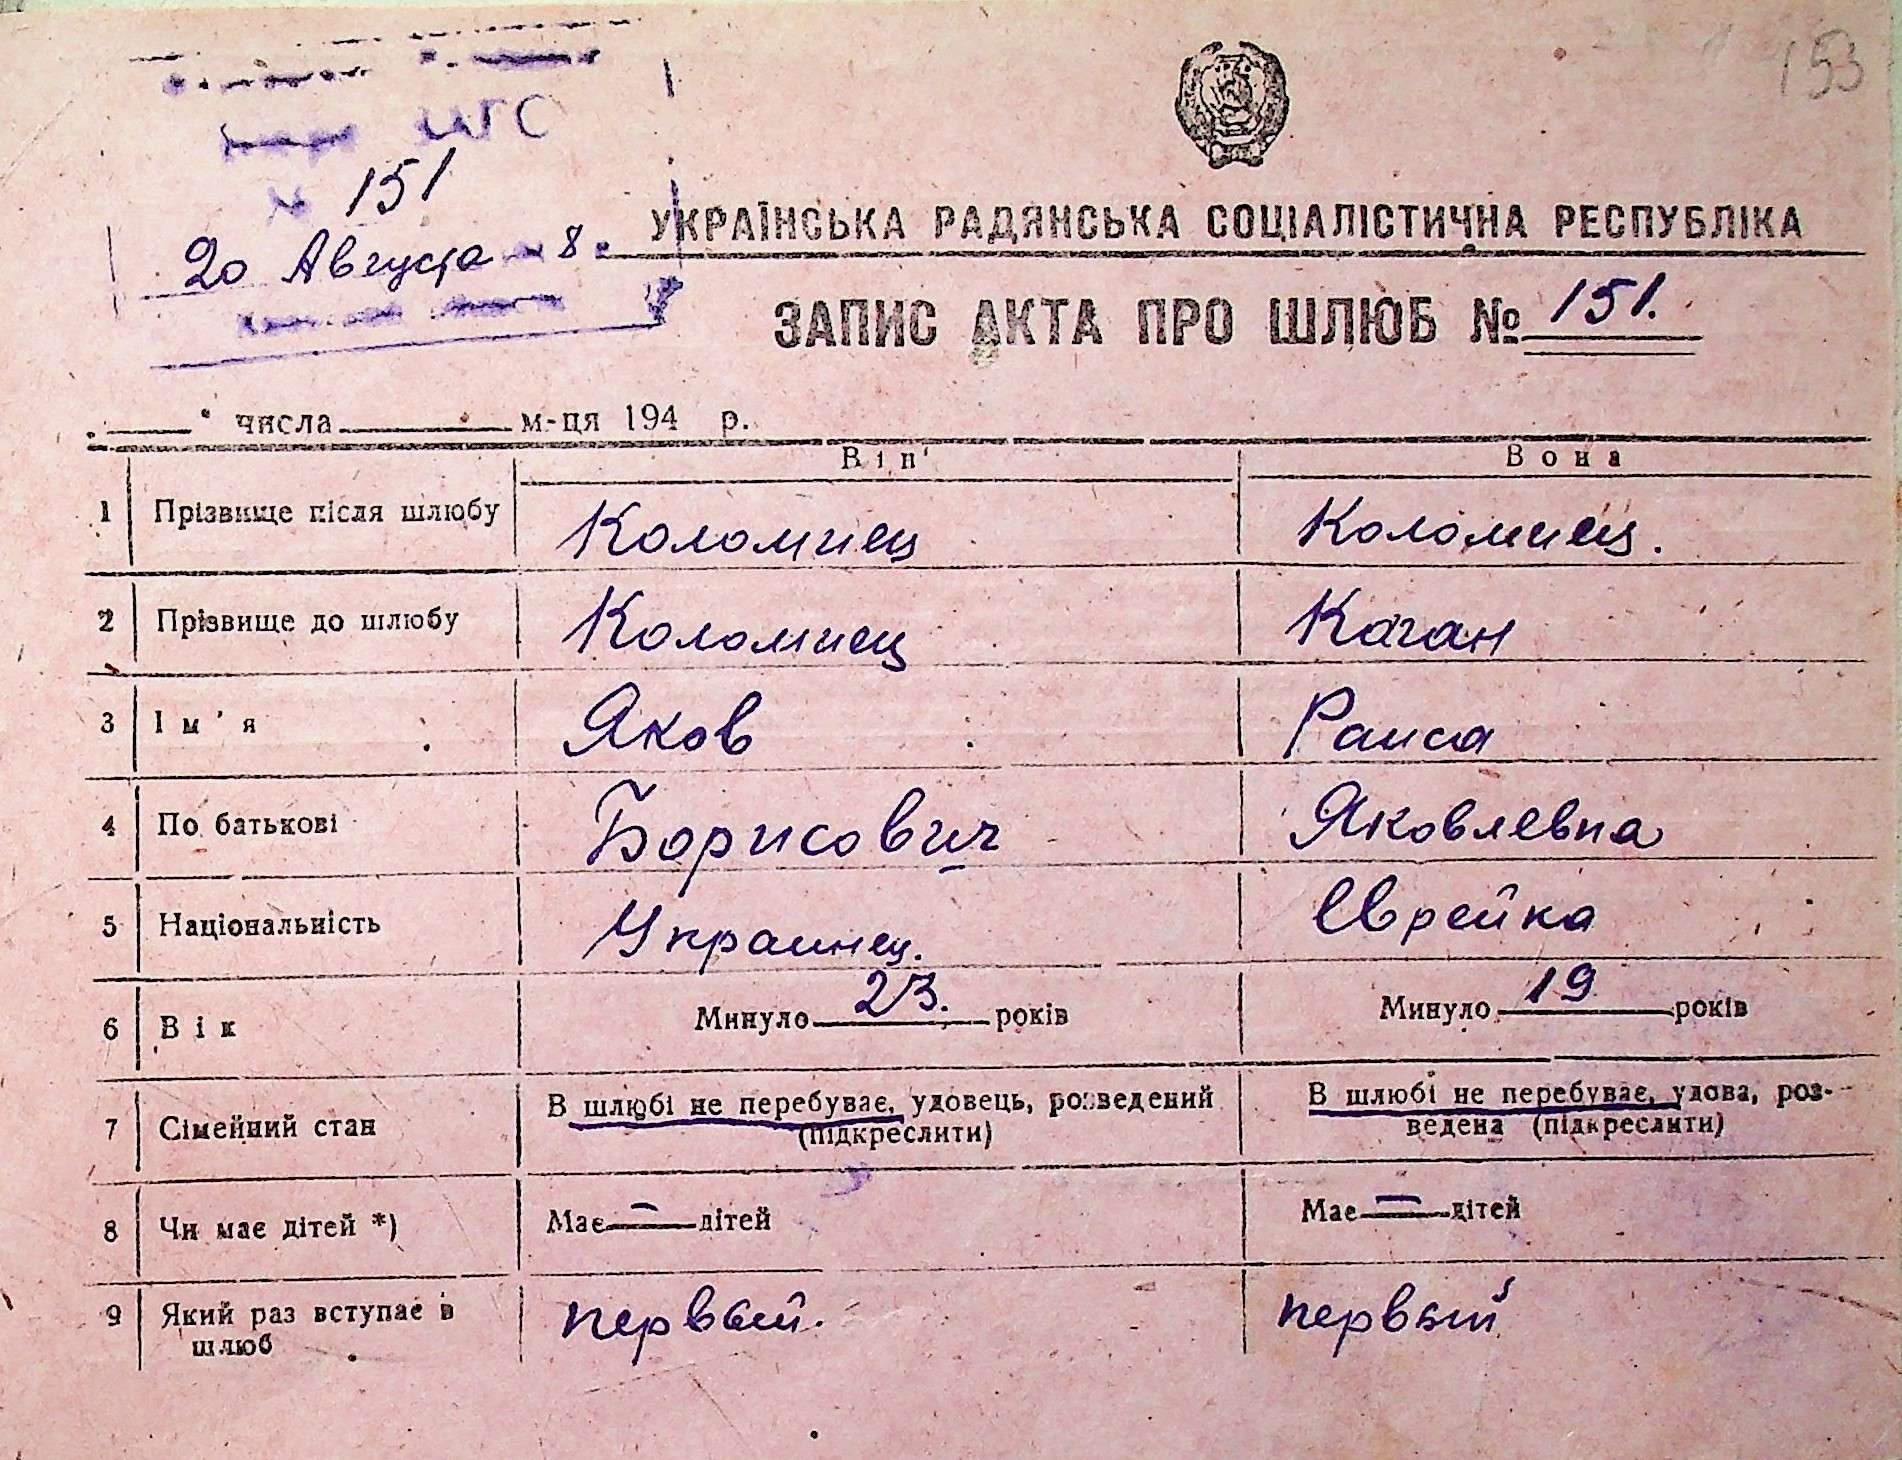 153
ЗАГС
№ 151
20 Августа 8
УКРАЇНСЬКА РАДЯНСЬКА СОЦІАЛІСТИЧНА РЕСПУБЛІКА
ЗАПИС АКТА ПРО ШЛЮБ № 151.
" числа м-ця 194 р.
Він Вона
1 Прізвище після шлюбу Коломиец Коломиец.
2 Прізвище до шлюбу Коломиец Каган
3 Ім'я Яков Раиса
4 По батькові Борисович Яковлевна
5 Національність Украинец. Еврейка
6 Вік Минуло 23. років Минуло 19 років
7 Сімейний стан В шлюбі не перебуває, удовець, розведений В шлюбі не перебуває, удова, роз-
(підкреслити) ведена (підкреслити)
8 Чи має дітей *) Має — дітей Має — дітей
9 Який раз вступає в первый. первый
шлюб